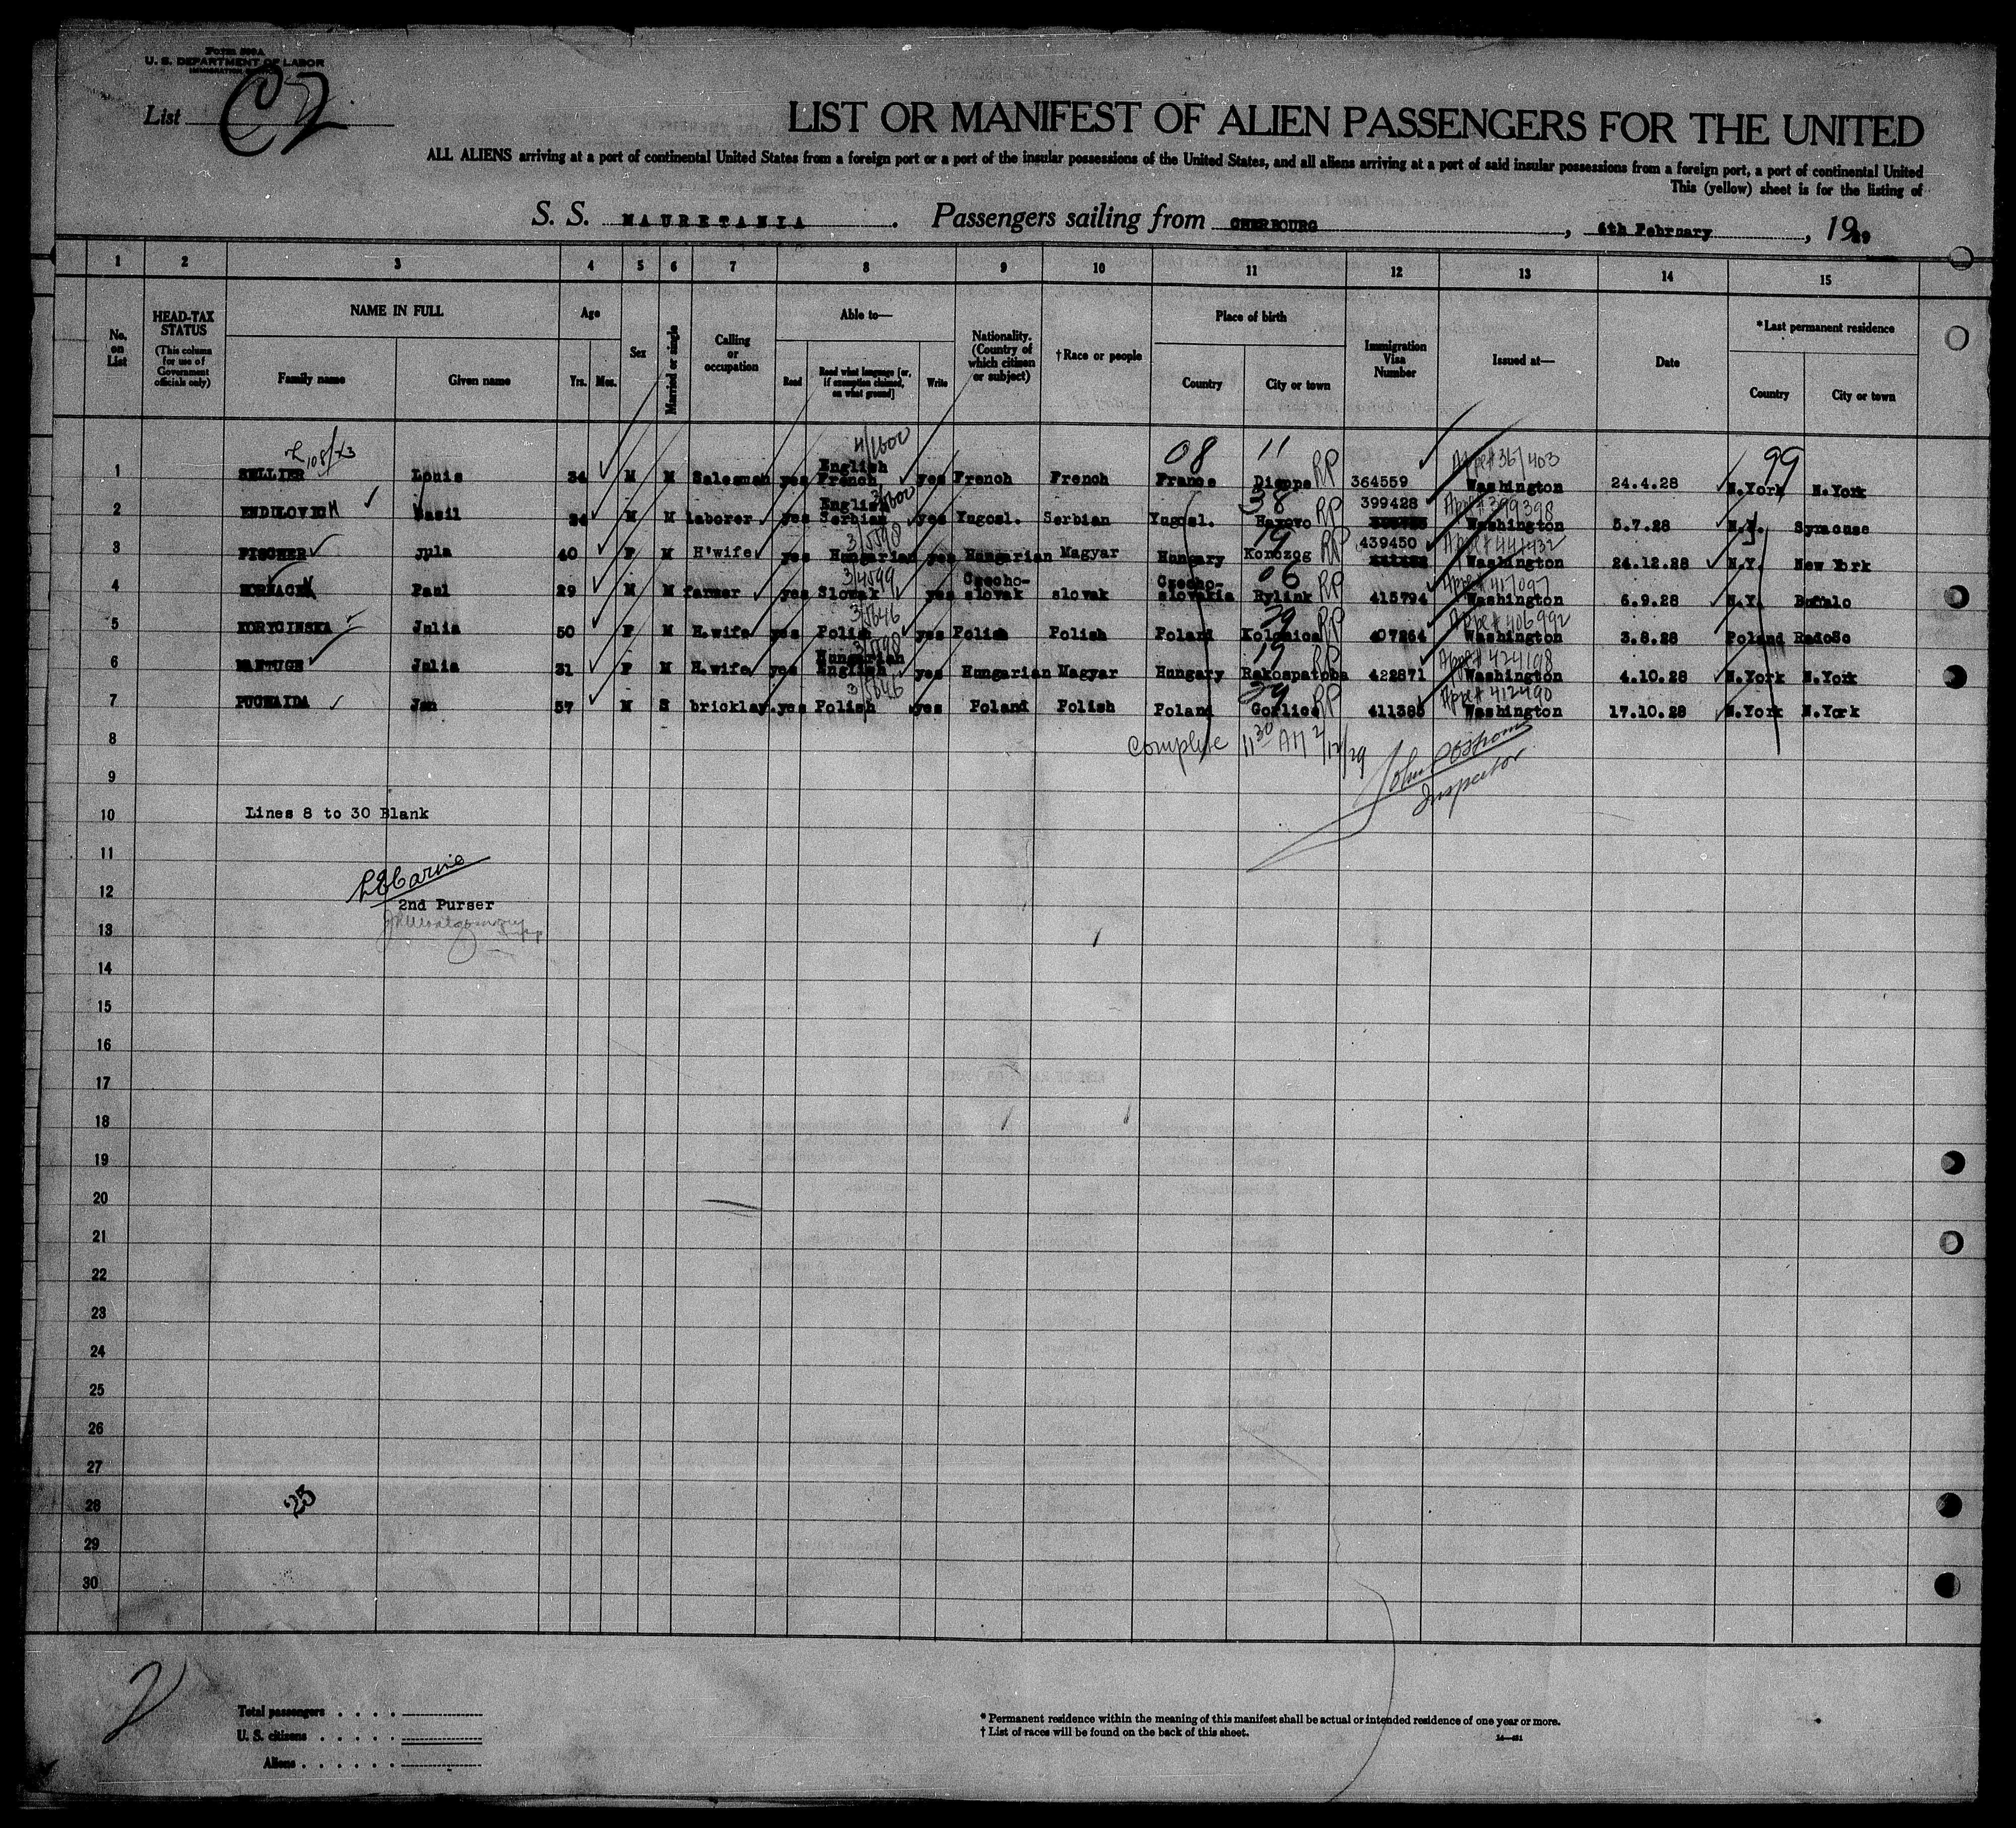 Form 500A
U. S. DEPARTMENT OF LABOR
IMMIGRATION
List C2
LIST OR MANIFEST OF ALIEN PASSENGERS FOR THE UNITED
ALL ALIENS arriving at a port of continental United States from a foreign port or a port of the insular possessions of the United States, and all aliens arriving at a port of said insular possessions from a foreign port, a port of continental United
This (yellow) sheet is for the listing of
S. S. MAURETANIA . Passengers sailing from CHERBOURG , 6th February , 1929
1 2 3 4 5 6 7 8 9 10 11 12 13 14 15
No. on List
HEAD-TAX STATUS (This column for use of Government officials only)
NAME IN FULL
Family name Given name
Age
Yrs. Mos.
Sex
Married or single
Calling or occupation
Able to—
Read Read what language [or, if exemption claimed, on what ground] Write
Nationality. (Country of which citizen or subject)
† Race or people
Place of birth
Country City or town
Immigration Visa Number
Issued at—
Date
* Last permanent residence
Country City or town
108/43 4/1600 08 11 Appl# 361403 99
1 SELLIER Louis 34 M M Salesman yes English French yes French French France Dieppe RP 364559 Washington 24.4.28 N.York N.York
3/1600 38 Appl# 399398
2 Basil 34 M M laborer yes English Serbian yes Yugosl. Serbian Yugosl. RP 399428 Washington 5.7.28 N.Y. Syracuse
19 Appl# 441432
3 FISCHER Jula 40 F M H'wife yes Hungarian yes Hungarian Magyar Hungary Konozog RP 439450 Washington 24.12.28 N.Y. New York
3/4599 06 Appl# 417097
4 Paul 29 M M farmer yes Slovak yes Czecho-slovak slovak Czecho-slovakia Rylink RP 415794 Washington 6.9.28 N.Y. Buffalo
3/5646 39 Appl# 406992
5 KORYCINSKA Julia 50 F M H.wife yes Polish yes Polish Polish Poland Kolonica RP 407264 Washington 3.8.28 Poland Radose
19 Appl# 424198
6 Julia 31 F M H.wife yes Hungarian English yes Hungarian Magyar Hungary Rakospatoba RP 422871 Washington 4.10.28 N.York N.York
3/5646 39 Appl# 412490
7 PUCHAIDA Jan 57 M S bricklay. yes Polish yes Poland Polish Poland Gorlice RP 411385 Washington 17.10.28 N.York N.York
8 Complete 11 30 AM 2/12/29 John
Inspector
9
10 Lines 8 to 30 Blank
11
12
2nd Purser
13
14
15
16
17
18
19
20
21
22
23
24
25
26
27
28 25
29
30
2
Total passengers . . . .
U. S. citizens . . . . .
Aliens . . . . . .
* Permanent residence within the meaning of this manifest shall be actual or intended residence of one year or more.
† List of races will be found on the back of this sheet.